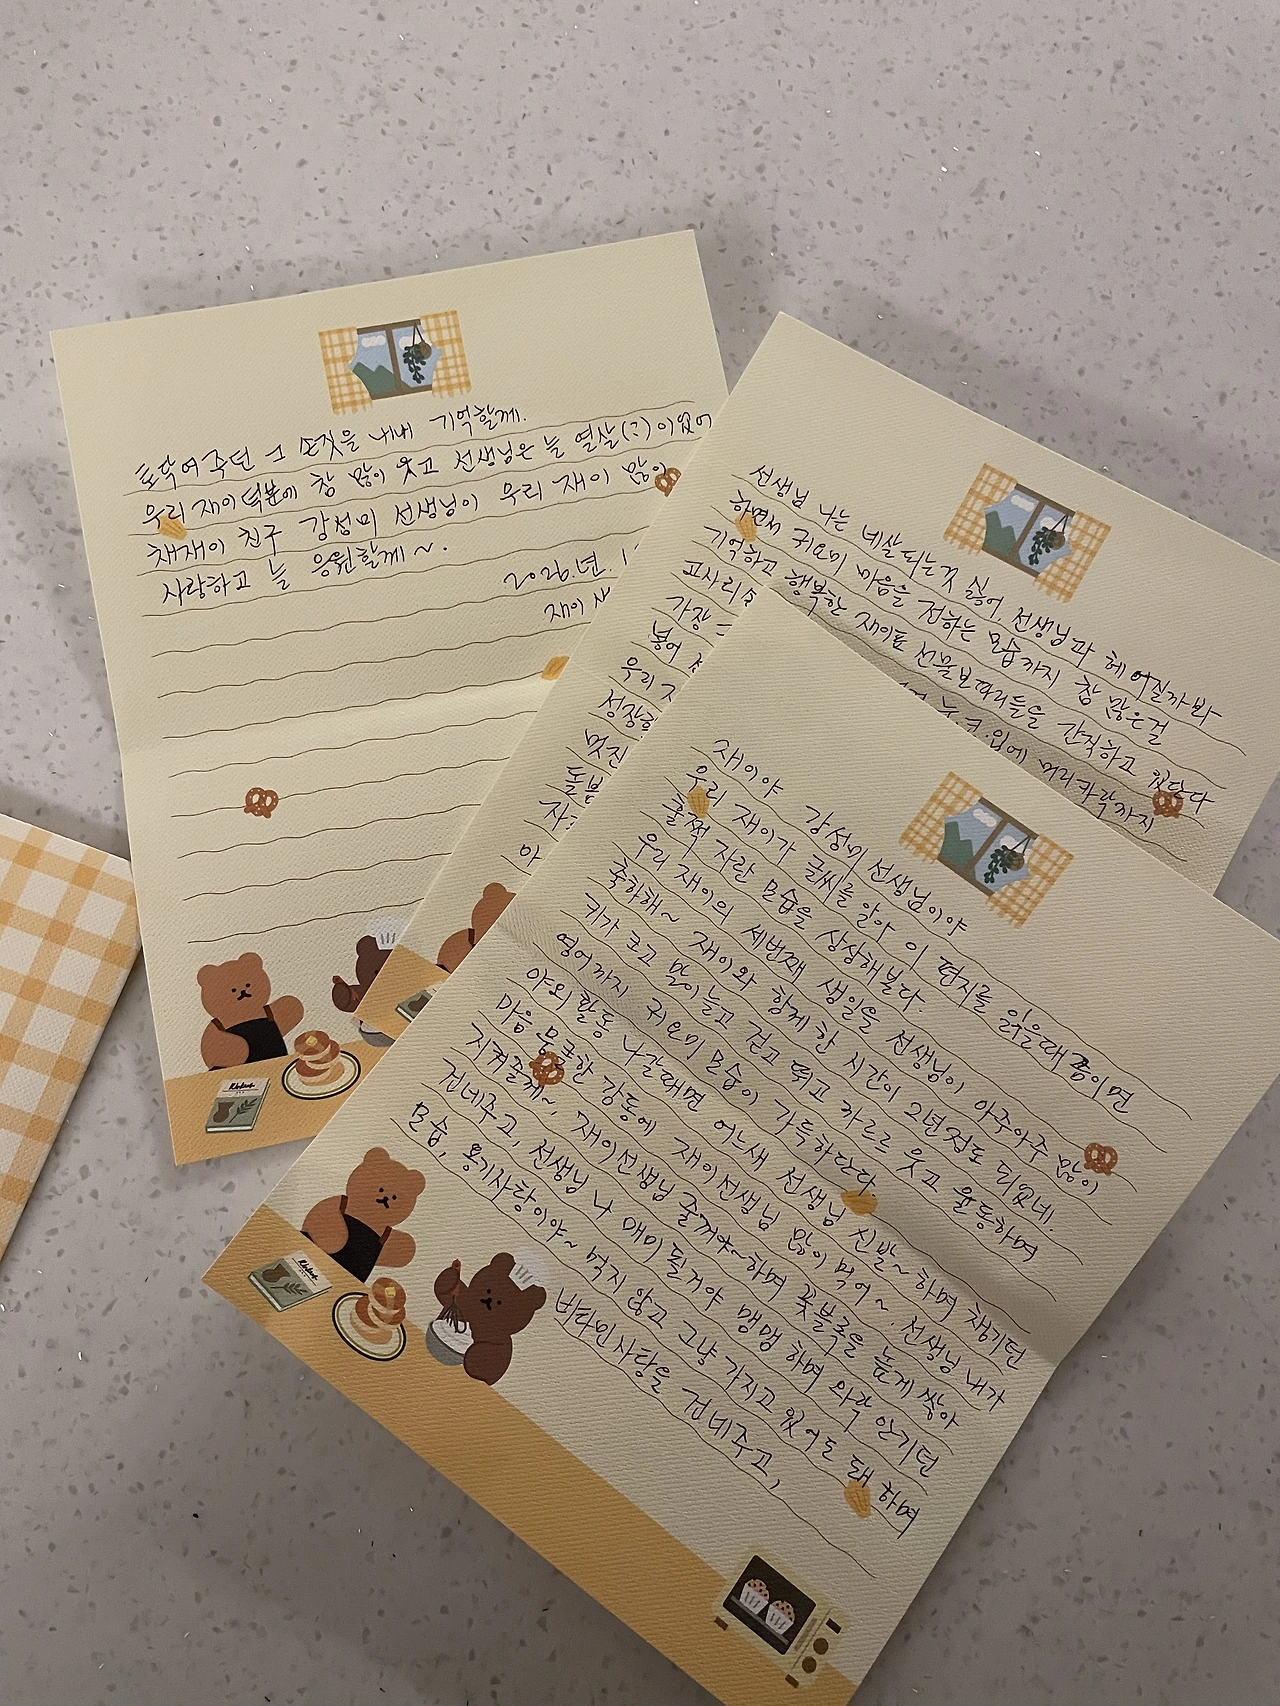 재이야 강성미 선생님이야
우리 재이가 글씨를 알아 이 편지를 읽을때쯤이면
훌쩍 자란 모습을 상상해본다.
우리 재이의 세번째 생일을 선생님이 아주아주 많이
축하해~ 재이와 함께 한 시간이 2년정도 되었네.
키가 크고 말이 늘고 걷고 뛰고 까르르 웃고 율동하며
영어까지 귀요미 모습이 가득하단다.
야외 활동 나갈때면 어느새 선생님 신발~ 하며 챙기던
마음 뭉클한 감동에 재이선생님 많이 먹어~. 선생님 내가
지켜줄께~, 재이선생님 줄꺼야~하며 꽃블록을 높게 쌓아
건네주고, 선생님 나 매미 될거야 맴맴 하며 와락 안기던
모습, 용기사탕이야~ 먹지 않고 그냥 가지고 있어도 돼 하며
비타민사탕을 건네주고,
선생님 나는 네살되는것 싫어, 선생님과 헤어질까봐
하면서 귀요미 마음을 전하는 모습까지 참 많은걸
기억하고 행복한 재이표 선물보따리들을 간직하고 있단다
고사리 눈.코.입에 머리카락까지
가장
붙어
우리
성장
멋진
돌봄
토닥여주던 그 손짓을 내내 기억할께.
우리 재이 덕분에 참 많이 웃고 선생님은 늘 열살(?)이었어
채재이 친구 강성미 선생님이 우리 재이 많이
사랑하고 늘 응원할께~.
2026.년.
재이